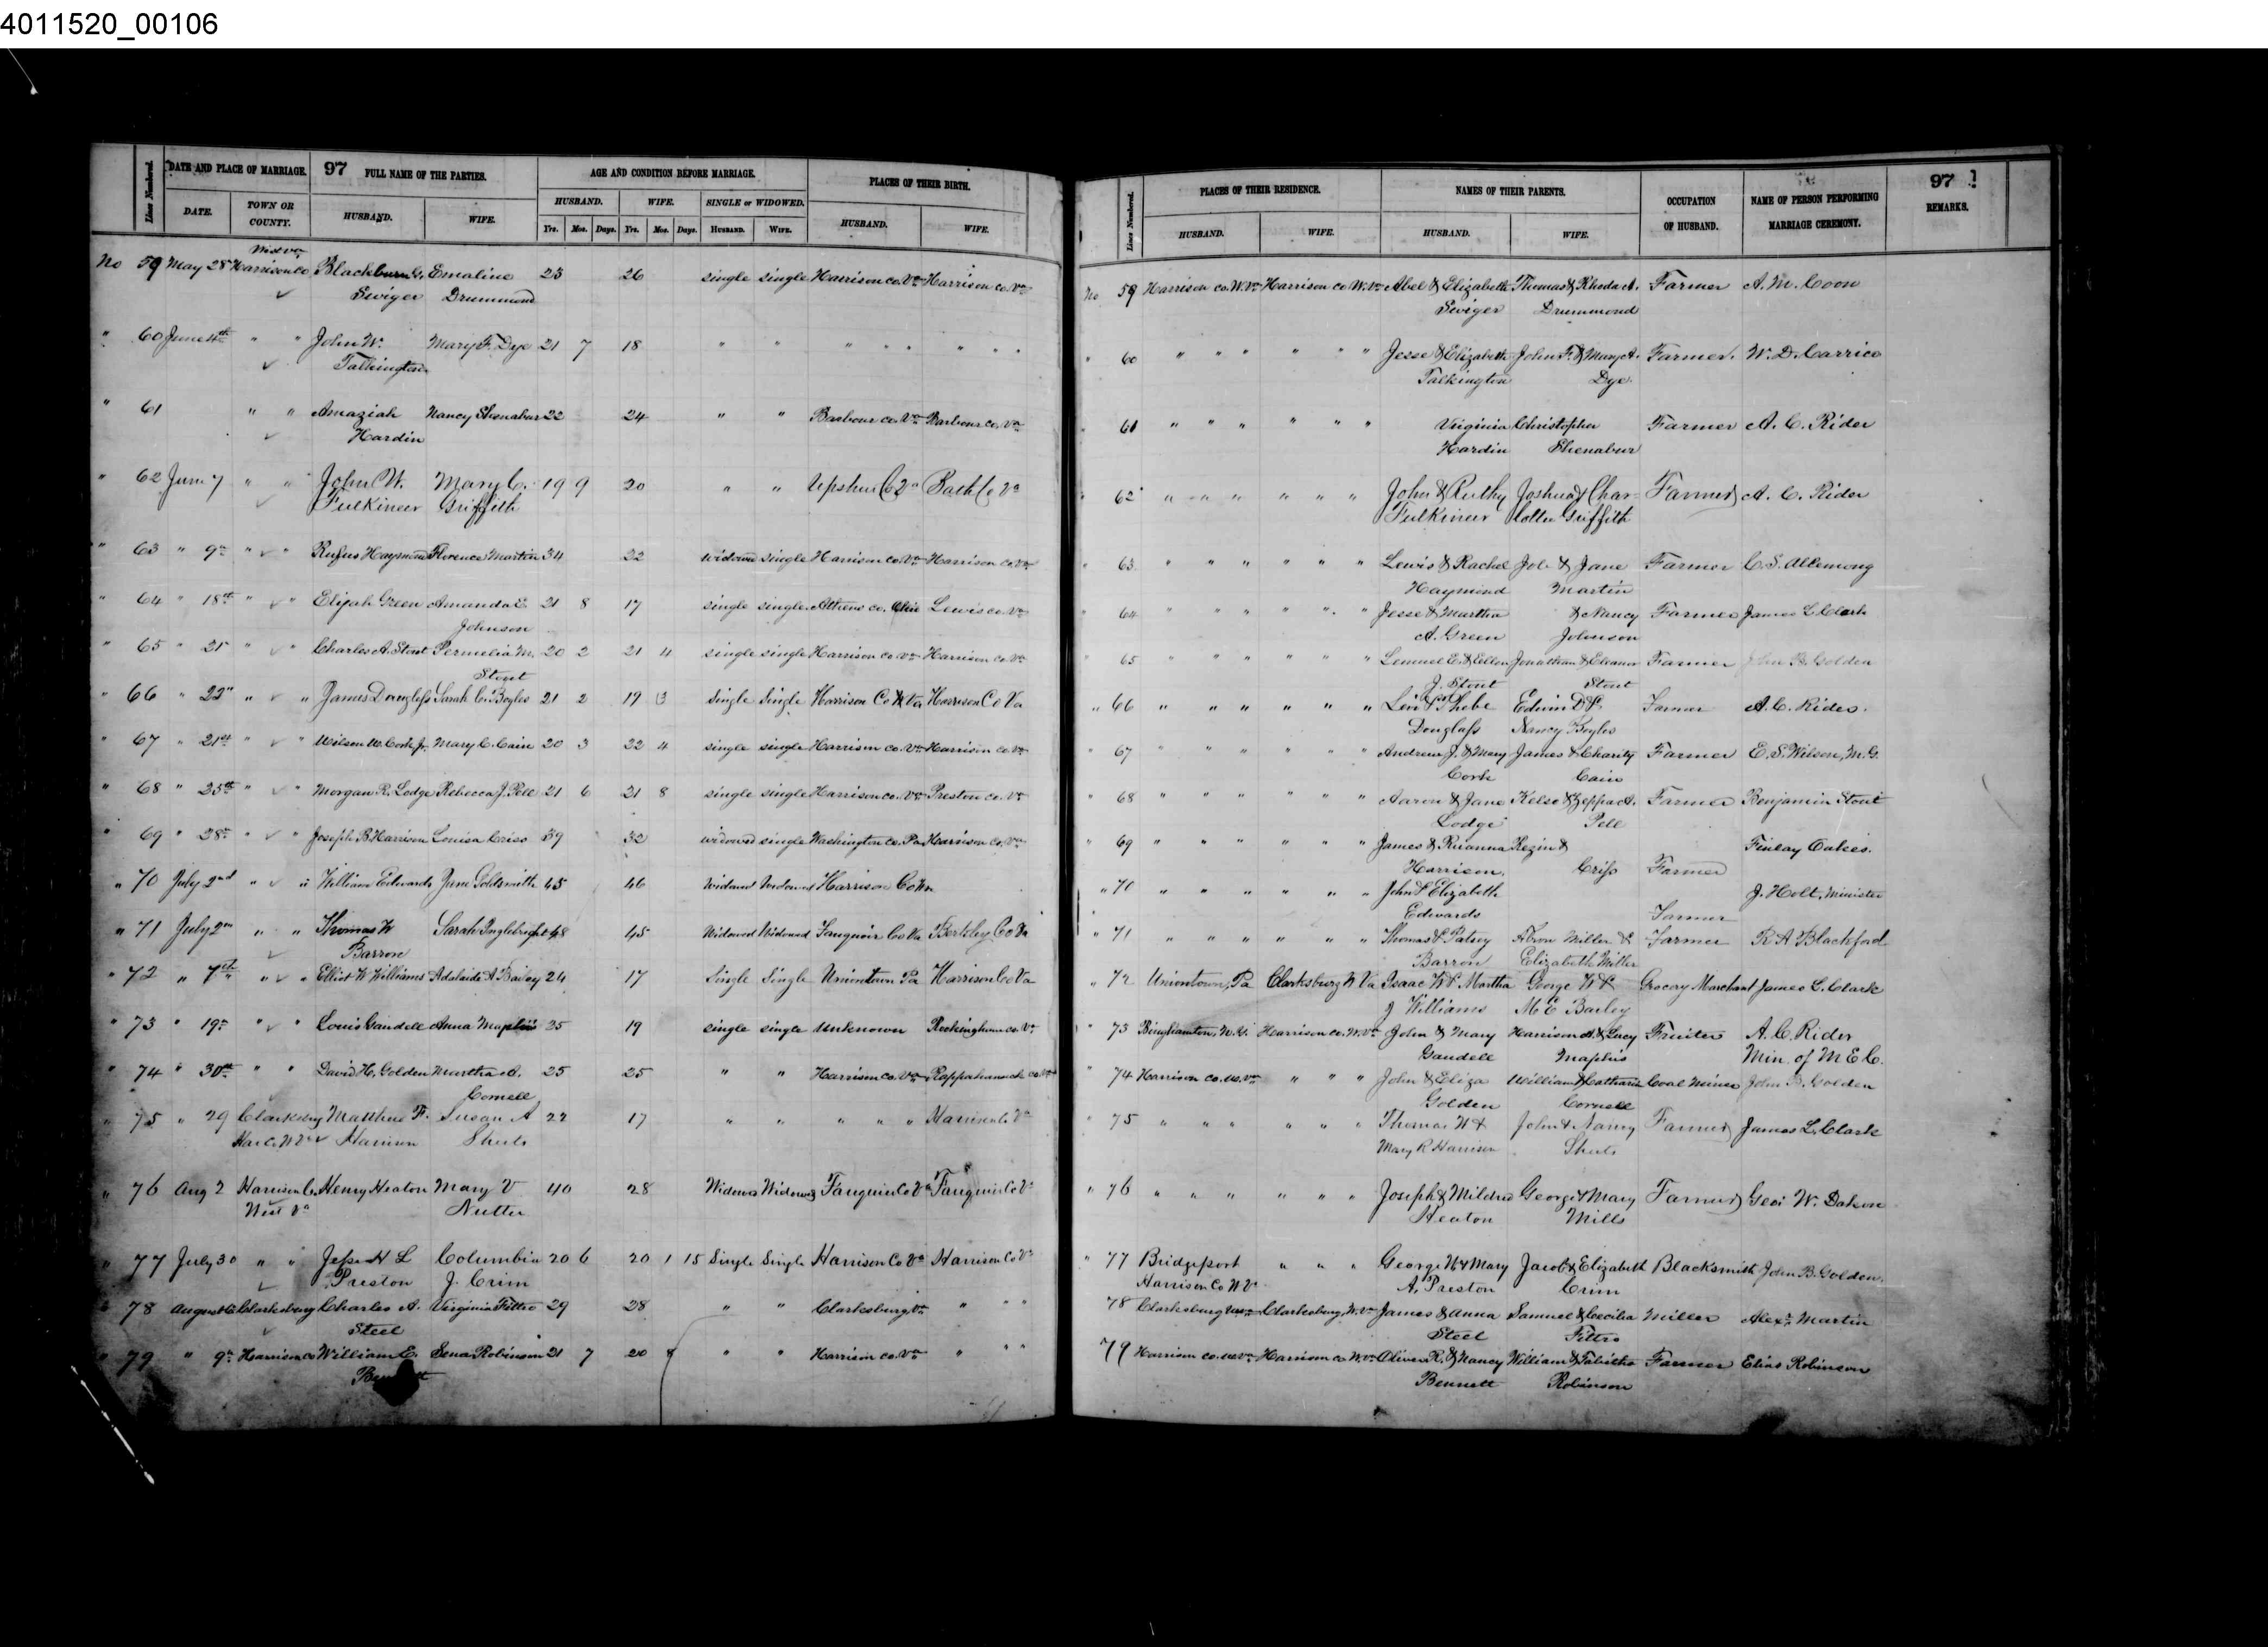 4011520_00106
97
Lines Numbered. DATE AND PLACE OF MARRIAGE. FULL NAME OF THE PARTIES. AGE AND CONDITION BEFORE MARRIAGE. PLACES OF THEIR BIRTH.
DATE. TOWN OR COUNTY. HUSBAND. WIFE. HUSBAND. WIFE. SINGLE or WIDOWED. HUSBAND. WIFE.
Yrs. Mos. Days. Yrs. Mos. Days. HUSBAND. WIFE.
West Va
No 59 May 28 Harrison Co Blackburn Emaline 23 26 single single Harrison co. Va Harrison co. Va
Swiger Drummond
" 60 June 4th " " John W. Mary F. Dye 21 7 18 " " " " " " " "
Talkington
" 61 " " Amaziah Nancy Shenabur 22 24 " " Barbour co. Va Barbour co. Va
Hardin
" 62 June 7 " " John W. Mary C. 19 9 20 " " Upshur Co Va Bath Co Va
Fulkineer Griffith
" 63 " 9th " " Rufus Haymond Florence Martin 34 22 widowed single Harrison co. Va Harrison co. Va
" 64 " 18th " " Elijah Green Amanda E. 21 8 17 single single Athens co. Ohio Lewis co. Va
Johnson
" 65 " 21 " " Charles A. Stout Permelia M. 20 2 21 4 single single Harrison co. Va Harrison co. Va
Stout
" 66 " 22" " " James Douglass Sarah C. Boyles 21 2 19 3 Single Single Harrison Co W Va Harrison Co Va
" 67 " 21st " " Wilson W. Cork Jr. Mary C. Cain 20 3 22 4 single single Harrison co. Va Harrison co. Va
" 68 " 25th " " Morgan R. Lodge Rebecca J. Pell 21 6 21 8 single single Harrison co. Va Preston co. Va
" 69 " 28th " " Joseph B. Harrison Louisa Criss 59 32 widowed single Washington co. Pa Harrison co. Va
" 70 July 2nd " " William Edwards Jane Goldsmith 45 46 Widowed Widowed Harrison Co Va
" 71 July 2nd " " Thomas W Sarah Inglebright 48 45 Widowed Widowed Fauquier Co Va Berkley Co Va
Barron
" 72 " 7th " " Elliot W Williams Adelaide A Bailey 24 17 Single Single Uniontown Pa Harrison Co Va
" 73 " 19th " " Louis Gandell Anna Maphis 25 19 single single Unknown Rockingham co. Va
" 74 " 30th " " David H. Golden Martha A. 25 25 " " Harrison co. Va Rappahannock co. Va
Cornell
" 75 " 29 Clarksburg Matthew F. Susan A 22 17 " " " " " Harrison Co Va
Har Co W Va Harrison Sheets
" 76 Aug 2 Harrison Co Henry Heaton Mary V 40 28 Widower Widowed Fauquier Co Va Fauquier Co Va
West Va Nutter
" 77 July 30 " " Jesse H L Columbia 20 6 20 1 15 Single Single Harrison Co Va Harrison Co Va
Preston J. Crim
" 78 August 6 Clarksburg Charles A. Virginia Fittro 29 28 " " Clarksburg Va " " "
Steel
" 79 " 9th Harrison co William E. Sena Robinson 21 7 20 8 " " Harrison co. Va " " "
Bennett
97
Lines Numbered. PLACES OF THEIR RESIDENCE. NAMES OF THEIR PARENTS. OCCUPATION OF HUSBAND. NAME OF PERSON PERFORMING MARRIAGE CEREMONY. REMARKS.
HUSBAND. WIFE. HUSBAND. WIFE.
No 59 Harrison co. W. Va Harrison co W. Va Abel & Elizabeth Thomas & Rhoda A. Farmer A. M. Coon
Swiger Drummond
" 60 " " " " " " Jesse & Elizabeth John F. & Mary A. Farmer. W. D. Carrico
Talkington Dye.
" 61 " " " " " " Virginia Christopher Farmer A. C. Rider
Hardin Shenabur
" 62 " " " " " " John & Ruthy Joshua & Char- Farmer A. C. Rider
Fulkineer lotte Griffith
" 63 " " " " " " Lewis & Rachel Job & Jane Farmer C. S. Allemong
Haymond Martin
" 64 " " " " " " Jesse & Martha & Nancy Farmer James L Clark
A. Green Johnson
" 65 " " " " " " Lemuel E. & Ellen Jonathan & Eleanor Farmer John B. Golden
J. Stout Stout
" 66 " " " " " " Levi & Phebe Edwin D & Farmer A. C. Rider.
Douglass Nancy Boyles
" 67 " " " " " " Andrew J. & Mary James & Charity Farmer E. S. Wilson, M. G.
Cork Cain
" 68 " " " " " " Aaron & Jane Kelso & Zeppa A. Farmer Benjamin Stout
Lodge Pell
" 69 " " " " " " James & Rhianna Rezin & Finlay Oakes.
Harrison. Criss Farmer
" 70 " " " " " " John & Elizabeth J. Holt, Minister
Edwards Farmer
" 71 " " " " " " Thomas & Patsey Abron Miller & Farmer R A Blackford
Barron Elizabeth Miller
" 72 Uniontown, Pa Clarksburg W Va Isaac W & Martha George W & Grocery Merchant James L. Clark
J Williams M E Bailey
" 73 Binghamton, N. Y. Harrison co. W. Va John & Mary Harrison A. & Lucy Fruiter A. C. Rider
Gandell Maphis Min. of M E C.
" 74 Harrison co. W. Va " " " John & Eliza William & Catharine Coal Miner John B. Golden
Golden Cornell
" 75 " " " " " " Thomas W & John & Nancy Farmer James L. Clark
Mary R Harrison Sheets
" 76 " " " " " " Joseph & Mildred George & Mary Farmer Geo. W. Dakon
Heaton Mills
" 77 Bridgeport " " " George W & Mary Jacob & Elizabeth Blacksmith John B. Golden.
Harrison Co W Va A. Preston Crim
78 Clarksburg W. Va Clarksburg, W. Va James & Anna Samuel & Cecilia Miller Alexr Martin
Steel Fittro
79 Harrison co. W. Va Harrison co. W. Va Oliver R. & Nancy William & Tabitha Farmer Elias Robinson
Bennett Robinson